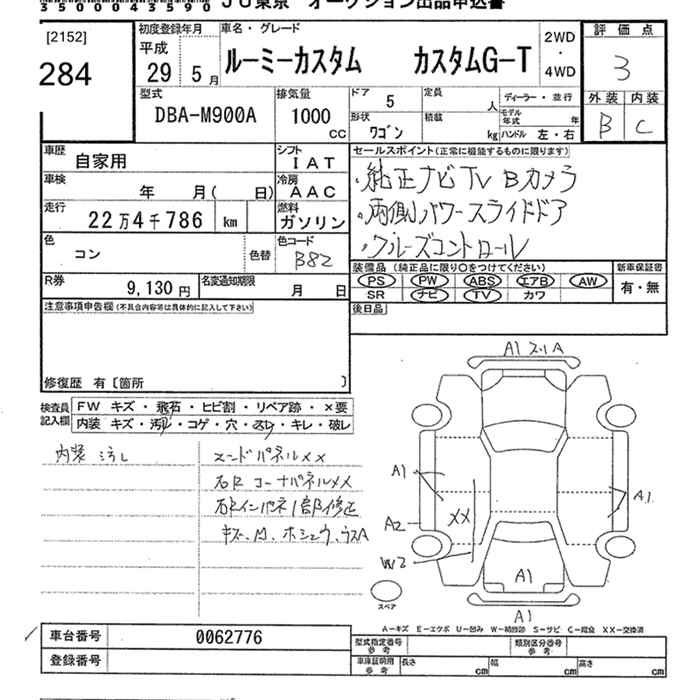 35000043590 JU東京 オークション出品申込書
[2152]
284
初度登録年月
平成
29 5月
車名・グレード
ルーミーカスタム カスタムG-T
2WD
・
4WD
評価点
3
外装 内装
B C
型式
DBA-M900A
排気量
1000
cc
ドア 5
定員 人
ディーラー・並行
形状 ワゴン
積載 kg
モデル年式 年
ハンドル 左・右
車歴 自家用
シフト IAT
セールスポイント(正常に機能するものに限ります)
車検 年 月( 日)
冷房 AAC
・純正ナビTV Bカメラ
走行 22万4千786 km
燃料 ガソリン
・両側パワースライドドア
色 コン
色替
色コード B82
・クルーズコントロール
R券 9,130円
名変通知期限 月 日
装備品(純正品に限り○をつけてください)
新車保証書
PS PW ABS エアB AW
有・無
SR ナビ TV カワ
注意事項申告欄(不具合内容等は具体的に記入して下さい)
後日品
修復歴 有〔箇所 〕
検査員記入欄
FW キズ・飛石・ヒビ割・リペア跡・×要
内装 キズ・汚レ・コゲ・穴・スレ・キレ・破レ
内装 汚レ
エンドパネルXX
右R コーナパネルXX
右Rインパネ1部修正
キズ.M.ホシュウ.ウスA
A1 スリA
A1
A1
A2
XX
W2
A1
A1
スペア
A-キズ E-エクボ U-凹み W-補修跡 S-サビ C-腐食 XX-交換済
車台番号 0062776
登録番号
型式指定番号 参考
類別区分番号 参考
車庫証明用 参考
長さ cm
幅 cm
高さ cm